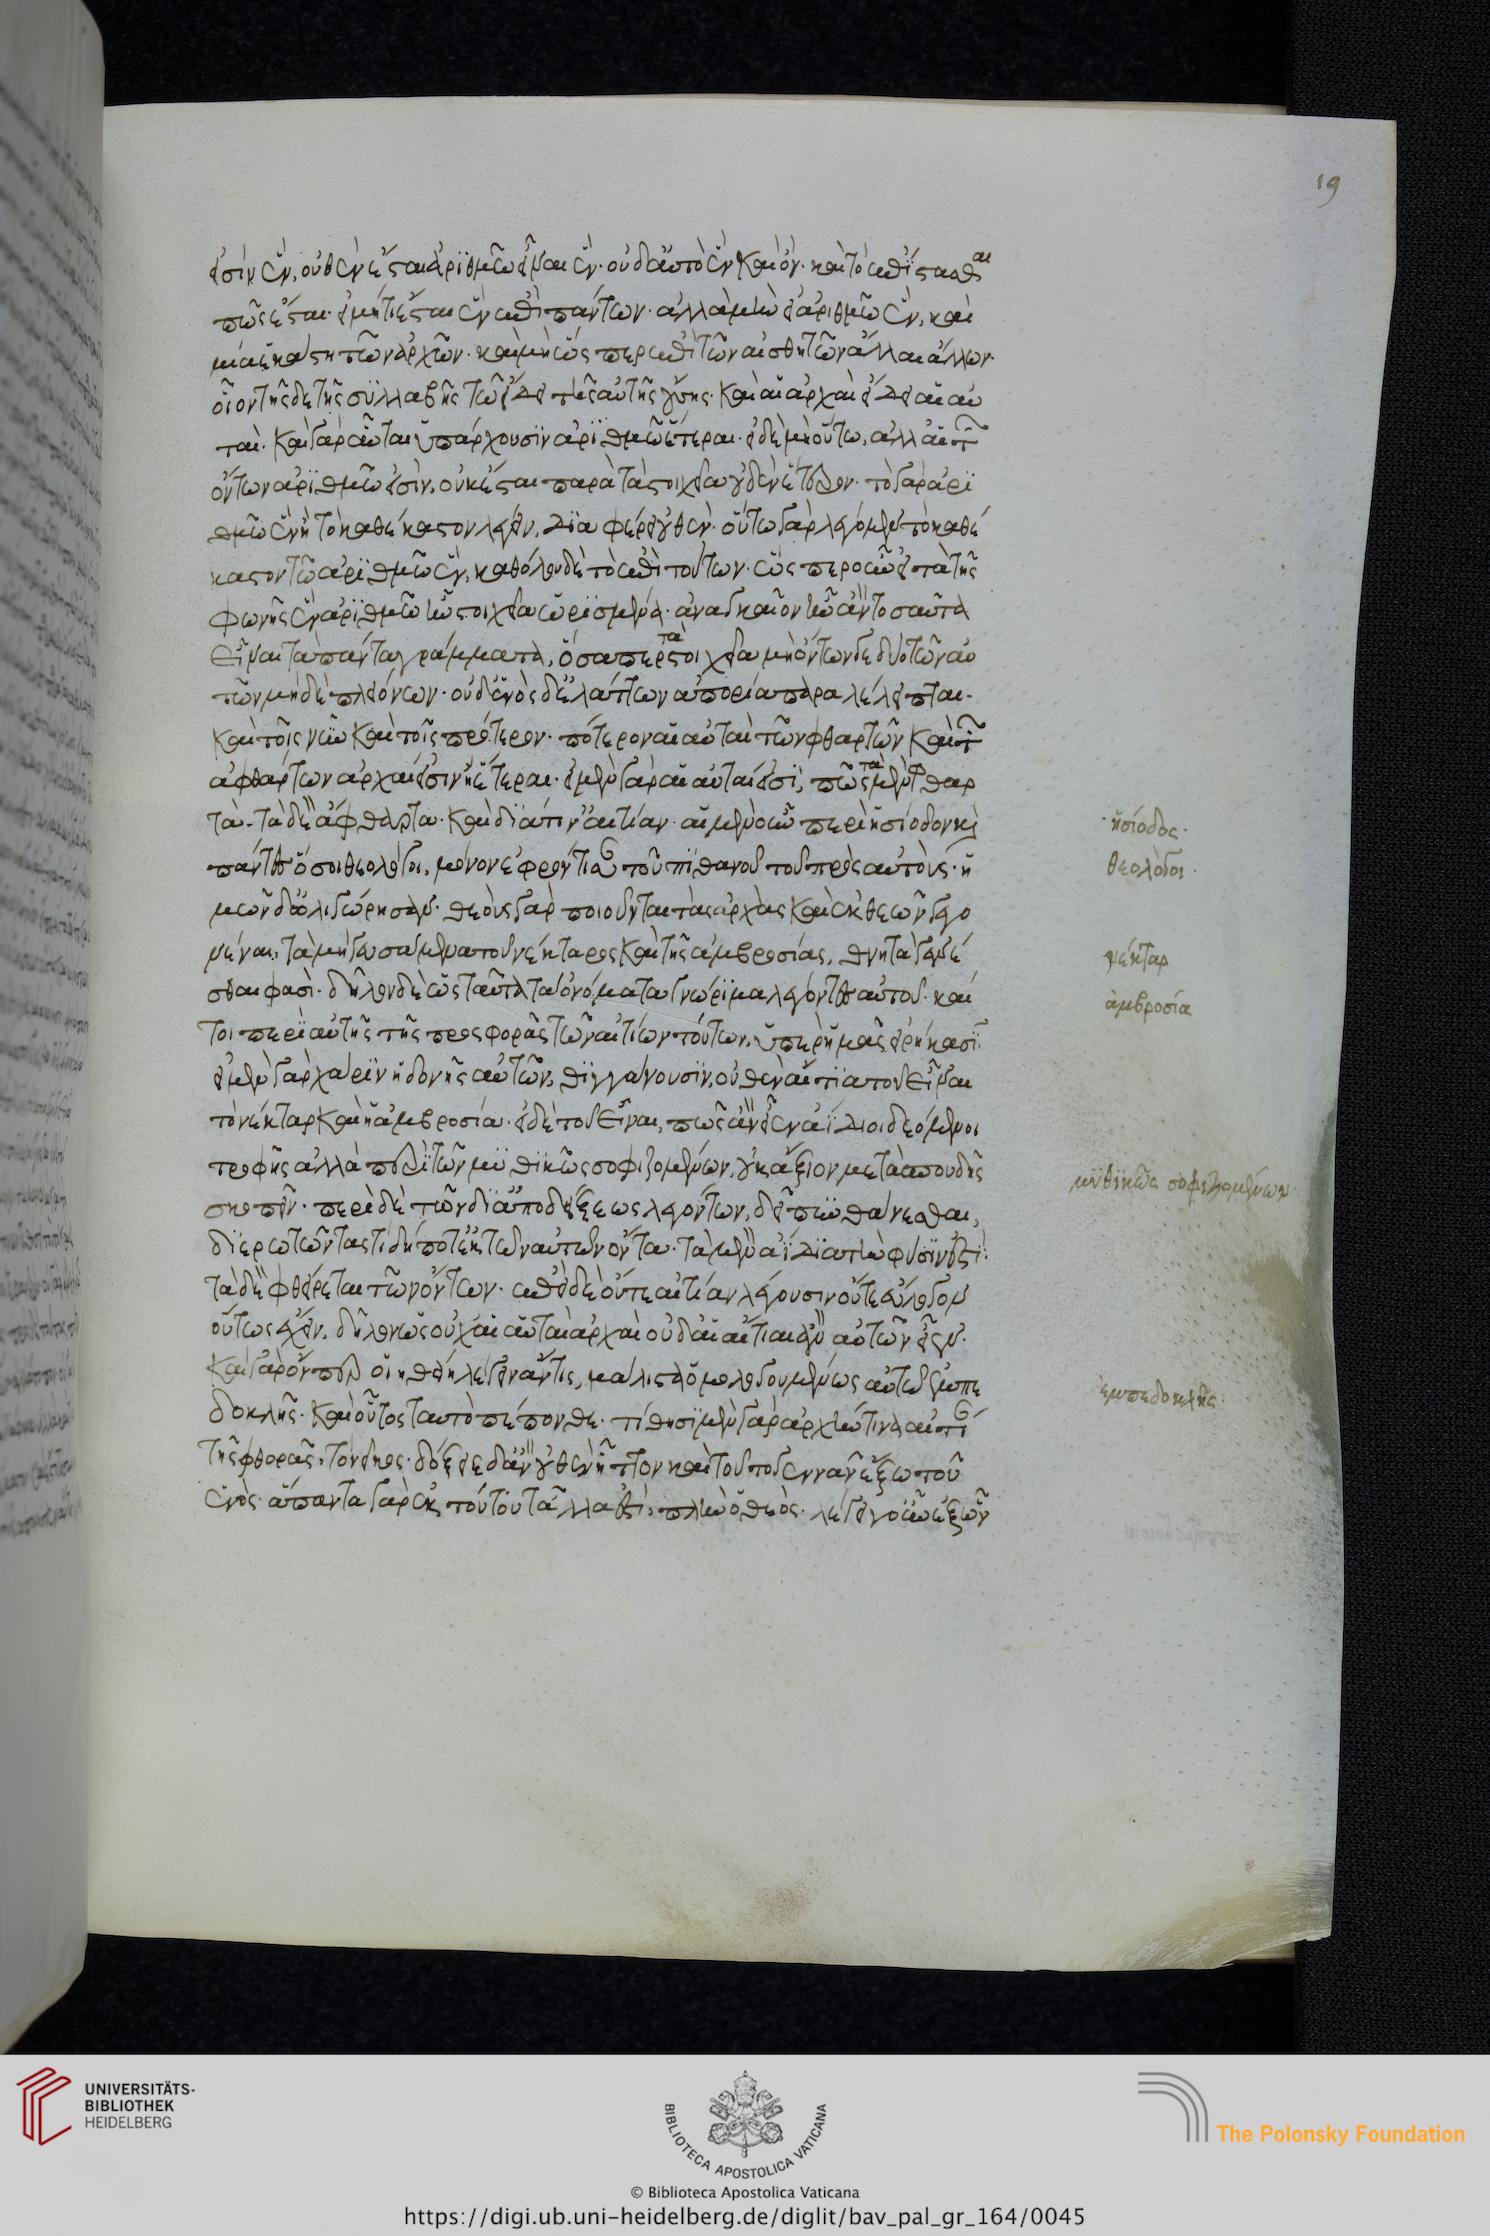 19
εἰσὶν ἕν, οὐθὲν ἔσται ἀριθμῷ εἶναι ἕν. οὐδ' αὐτὸ ἓν καὶ ὄν. καὶ τὸ ἐπίστασθαι
πῶς ἔσται. εἰ μή τι ἔσται ἓν ἐπὶ πάντων. ἀλλὰ μὴν εἰ ἀριθμῷ ἕν, καὶ
μία ἑκάστη τῶν ἀρχῶν. καὶ μὴ ὥσπερ ἐπὶ τῶν αἰσθητῶν ἄλλαι ἄλλων.
οἷον τῆσδε τῆς συλλαβῆς τῷ εἴδει τῆς αὐτῆς οὔσης. καὶ αἱ ἀρχαὶ εἴδει αἱ αὐ
ταί. καὶ γὰρ αὗται ὑπάρχουσιν ἀριθμῷ ἕτεραι. εἰ δὲ μὴ οὕτω, ἀλλ' αἱ τῶν
ὄντων ἀριθμῷ εἰσίν, οὐκ ἔσται παρὰ τὰ στοιχεῖα οὐδὲν ἕτερον. τὸ γὰρ ἀρι
θμῷ ἓν ἢ τὸ καθέκαστον λέγειν, διαφέρει οὐθέν. οὕτω γὰρ λέγομεν τὸ καθέ
καστον τῷ ἀριθμῷ ἕν, καθόλου δὲ τὸ ἐπὶ τούτων. ὥσπερ οὖν εἰ τὰ τῆς
φωνῆς ἓν ἀριθμῷ ἦν στοιχεῖα ὡρισμένα. ἀναγκαῖον ἦν ἂν τοσαῦτα
εἶναι τὰ πάντα γράμματα, ὅσαπερ τὰ στοιχεῖα μὴ ὄντων γε δύο τῶν αὐ
τῶν μηδὲ πλειόνων. οὐδενὸς δ' ἐλάττων ἀπορία παραλέλειπται.
καὶ τοῖς νῦν καὶ τοῖς πρότερον. πότερον αἱ αὐταὶ τῶν φθαρτῶν καὶ τῶν
ἀφθάρτων ἀρχαί εἰσιν ἢ ἕτεραι. εἰ μὲν γὰρ αἱ αὐταί εἰσι, πῶς τὰ μὲν φθαρ
τὰ. τὰ δὲ ἄφθαρτα. καὶ διὰ τίν' αἰτίαν. οἱ μὲν οὖν περὶ ἡσίοδον καὶ
πάντες ὅσοι θεολόγοι, μόνον ἐφρόντισαν τοῦ πιθανοῦ τοῦ πρὸς αὐτούς. ἡ
μῶν δ' ὠλιγώρησαν. θεοὺς γὰρ ποιοῦνται τὰς ἀρχὰς καὶ ἐκ θεῶν γεγο
μέναι, τὰ μὴ γευσάμενα τοῦ νέκταρος καὶ τῆς ἀμβροσίας, θνητὰ γενέ
σθαι φασί. δῆλον δὲ ὡς ταῦτα τὰ ὀνόματα γνώριμα λέγοντες αὑτοῖς. καί
τοι περὶ αὐτῆς τῆς προσφορᾶς τῶν αἰτίων τούτων, ὑπὲρ ἡμᾶς εἰρήκασιν.
εἰ μὲν γὰρ χάριν ἡδονῆς αὐτῶν, θιγγάνουσιν, οὐθὲν αἴτια τοῦ εἶναι
τὸ νέκταρ καὶ ἡ ἀμβροσία. εἰ δὲ τοῦ εἶναι, πῶς ἂν εἶεν ἀΐδιοι δεόμενοι
τροφῆς ἀλλὰ περὶ τῶν μυθικῶς σοφιζομένων, οὐκ ἄξιον μετὰ σπουδῆς
σκοπεῖν. περὶ δὲ τῶν δι' ἀποδείξεως λεγόντων, δεῖ πυνθάνεσθαι,
διερωτῶντας τί δήποτ' ἐκ τῶν αὐτῶν ὄντα. τὰ μὲν ἀΐδια τὴν φύσιν ἐστί.
τὰ δὲ φθείρεται τῶν ὄντων. ἐπεὶ δὲ οὔτε αἰτίαν λέγουσιν οὔτε εὔλογον
οὕτως ἔχειν, δῆλον ὡς οὐχ αἱ αὐταὶ ἀρχαὶ οὐδ' αἱ αἰτίαι ἂν αὐτῶν εἶεν.
καὶ γὰρ ὅνπερ οἰηθείη λέγειν ἄν τις, μάλιστα ὁμολογουμένως αὑτῷ ἐμπε
δοκλῆς. καὶ οὗτος ταὐτὸ πέπονθε. τίθησι μὲν γὰρ ἀρχήν τινα αἰτίαν
τῆς φθορᾶς, τὸ νεῖκος. δόξειε δ' ἂν οὐθὲν ἧττον καὶ τοῦτο γεννᾶν ἔξω τοῦ
ἑνός. ἅπαντα γὰρ ἐκ τούτου τἆλλα ἐστί, πλὴν ὁ θεός. λέγει γοῦν ἐξ ὧν
ἡσίοδος.
θεολόγοι.
νέκταρ
ἀμβροσία
μυθικῶς σοφιζομένων.
ἐμπεδοκλῆς.
UNIVERSITÄTS-
BIBLIOTHEK
HEIDELBERG
BIBLIOTECA APOSTOLICA VATICANA
© Biblioteca Apostolica Vaticana
The Polonsky Foundation
https://digi.ub.uni-heidelberg.de/diglit/bav_pal_gr_164/0045